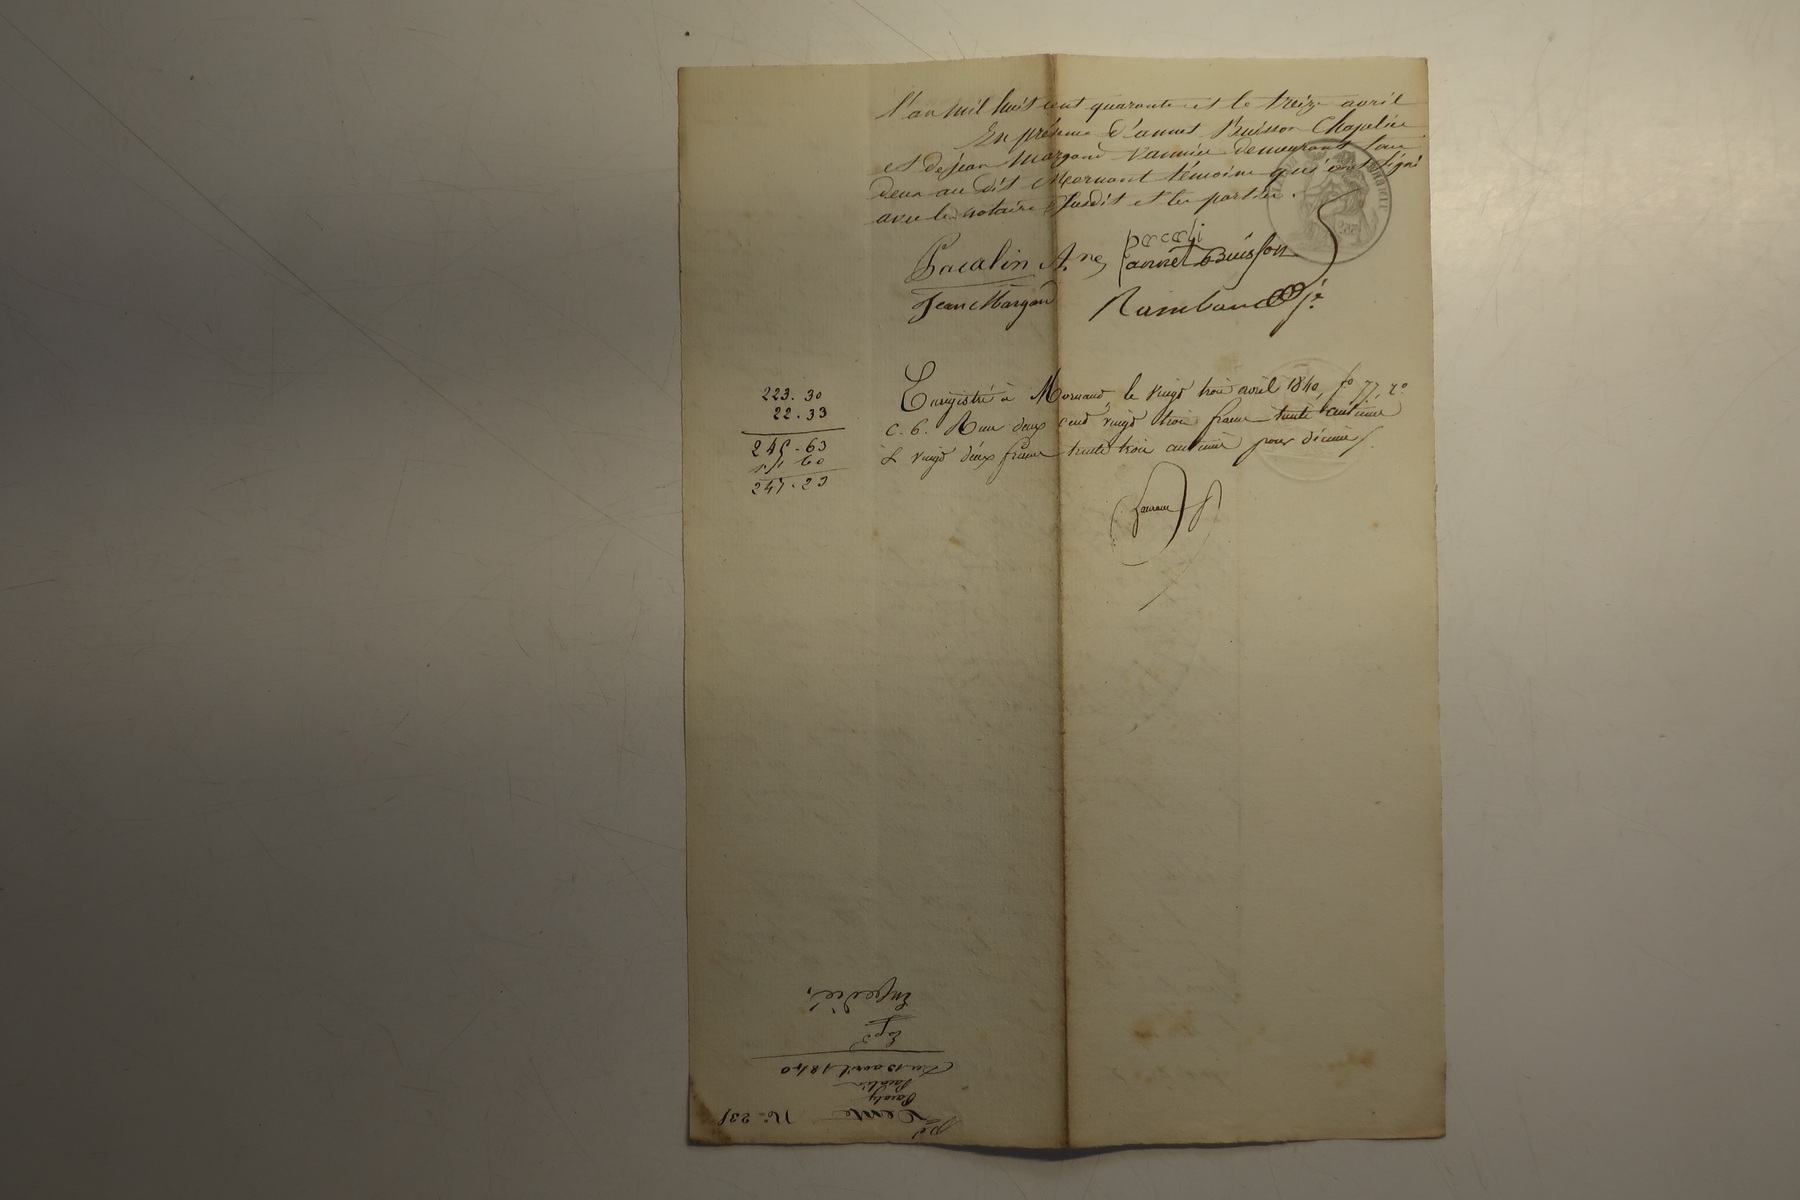 l'an mil huit cent quarante et le treize avril
En présence d'annet Buisson Chapelier
et de jean Margand vannier demeurant tous
deux au dit Mornant témoins qui ont signé
avec le notaire susdit et les parties.
Pacalin A.né pacali
annet Buisson
Jean Margand Rambaud
223. 30
22. 33
245. 63
1. 60
247. 23
Enregistré à Mornant, le vingt trois avril 1840, fo 77, ro
c. 6. Reçu deux cent vingt trois francs trente centimes
& vingt deux francs trente trois centimes pour décime
Expédié,
Expé
Du 13 avril 1840
Pacalin
Pacaly
Vente No. 235